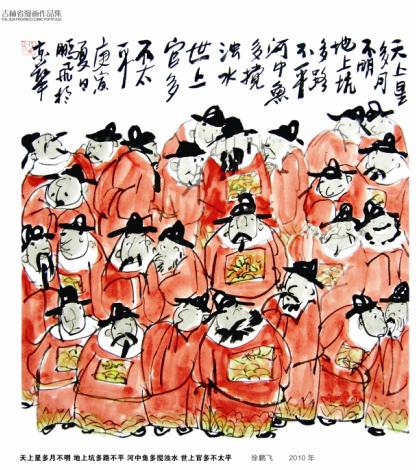 吉林省漫画作品集
THE JILIN PROVINCE COMIC PORTFOLIO
天上星
多月
不明
地上坑
多路
不平
河中鱼
多搅
浊水
世上
官多
不太
平
庚寅
夏日
鹏飞於
京华
天上星多月不明 地上坑多路不平 河中鱼多搅浊水 世上官多不太平 徐鹏飞 2010年